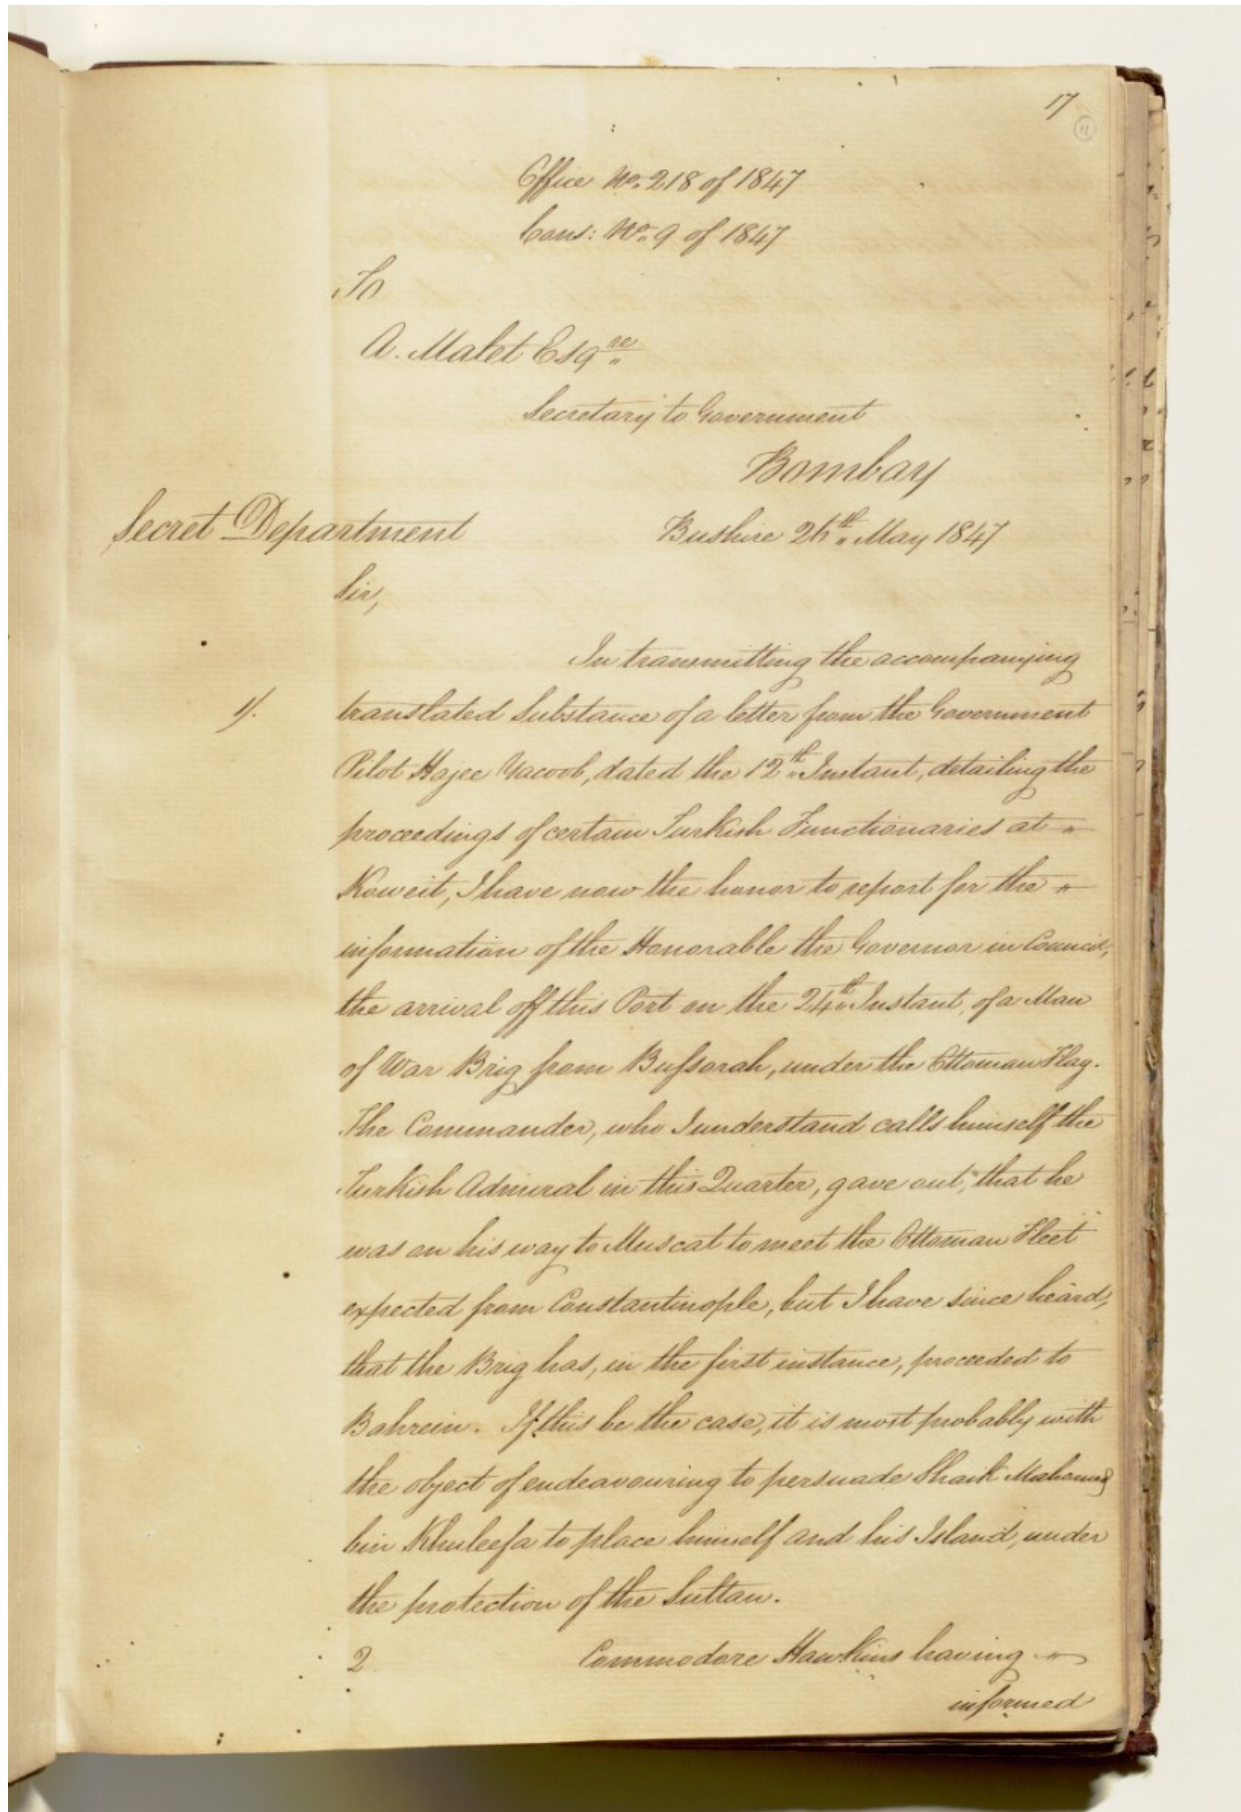 17
11
Office No. 218 of 1847
Cons: No. 9 of 1847
To
A. Malet Esqre
Secretary to Government
Bombay
Secret Department Bushire 26th May 1847
Sir,
In transmitting the accompanying
1/. translated Substance of a letter from the Government
Pilot Hajee Yacoob, dated the 12th Instant, detailing the
proceedings of certain Turkish Functionaries at
Koweit, I have now the honor to report for the
information of the Honorable the Governor in Council,
the arrival off this Port on the 24th Instant, of a Man
of War Brig from Bussorah, under the Ottoman Flag.
The Commander, who I understand calls himself the
Turkish Admiral in this Quarter, gave out, that he
was on his way to Muscat to meet the Ottoman Fleet
expected from Constantinople, but I have since heard,
that the Brig has, in the first instance, proceeded to
Bahrein. If this be the case, it is most probably with
the object of endeavouring to persuade Shaik Mahomed
bin Khuleefa to place himself and his Island, under
the protection of the Sultan.
2 Commodore Hawkins having
informed